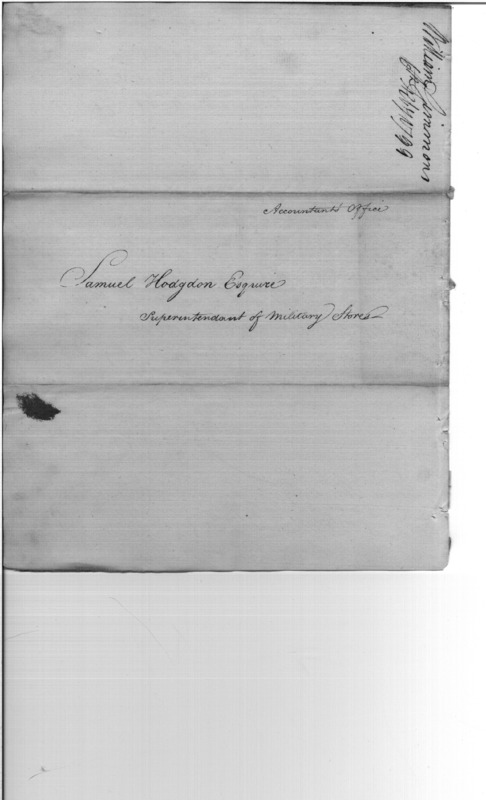 William Simmons
1799
Accountants Office
Samuel Hodgdon Esquire
Superintendant of Military Stores